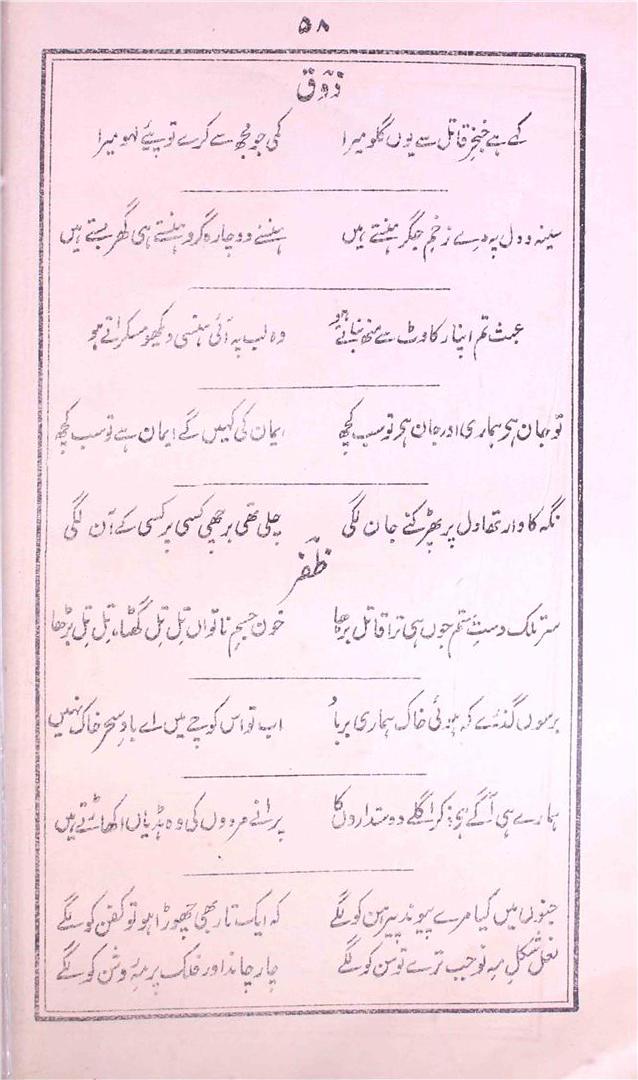 ۵۸
ذوق
کہے ہے خنجرِ قاتل سے یوں گلو میرا کمی جو مجھ سے کرے تو پئے لہو میرا
سینہ و دل پہ مرے زخمِ جگر ہنستے ہیں ہنسنے دو چارہ گرو ہنستے ہی گھر بستے ہیں
عبث تم اپنا رکاوٹ سے منھ بناتے ہو وہ لب پہ آئی ہنسی دیکھو مسکراتے ہو
تو جان ہی ہماری اور جان ہی تو سب کچھ ایمان کی کہیں گے ایمان ہے تو سب کچھ
نگہ کا وار تھا دل پر پھڑکنے جان لگی چلی تھی برچھی کسی پر کسی کے آن لگی
ظفر
سر تلک دستِ ستم جوں ہی ترا قاتل بڑھا خون جسمِ ناتواں تِل تِل گھٹا، تِل تِل بڑھا
برسوں گذرے کہ ہوئی خاک ہماری برباد اب تو اس کوچے میں اے بادِ سحر خاک نہیں
ہمارے ہی آگے ہی ذکر اگلے دوستداروں کا پرانے مردوں کی وہ ہڈیاں اکھاڑتے ہیں
جنوں میں کیا مرے پیوند پیرہن کو لگے کہ ایک تار بھی چھوڑا ہو تو کفن کو لگے
نعل شکلِ مہِ نو جب ترے توسن کو لگے چار چاند اور فلک پر مہِ روشن کو لگے